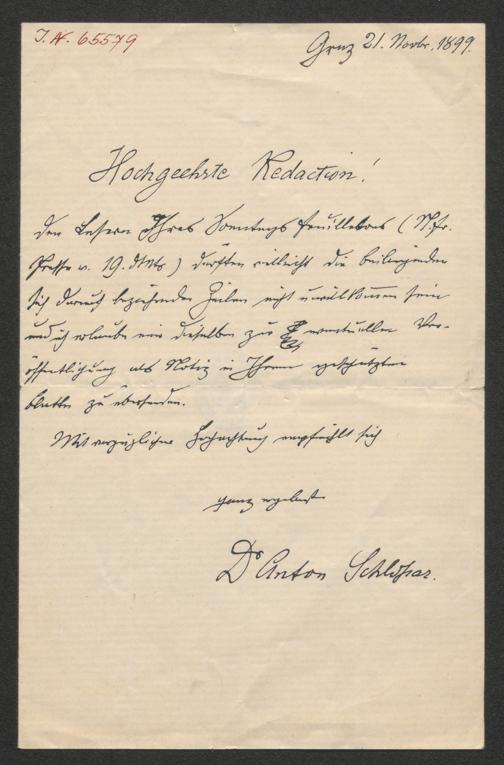 I.N. 65579
Graz 21. Novbr. 1899.
Hochgeehrte Redaction!
Den Lesern Ihres Sonntags Feuilletons (N. fr.
Presse v. 19. dMts) dürften vielleicht die beiliegenden
sich darauf beziehenden Zeilen nicht unwillkommen sein
und ich erlaube mir dieselben zur eventuellen Ver-
öffentlichung als Notiz in Ihrem geschätzten
Blatte zu übersenden.
Mit vorzüglicher Hochachtung empfiehlt sich
ganz ergebenst
Dr Anton Schlossar.